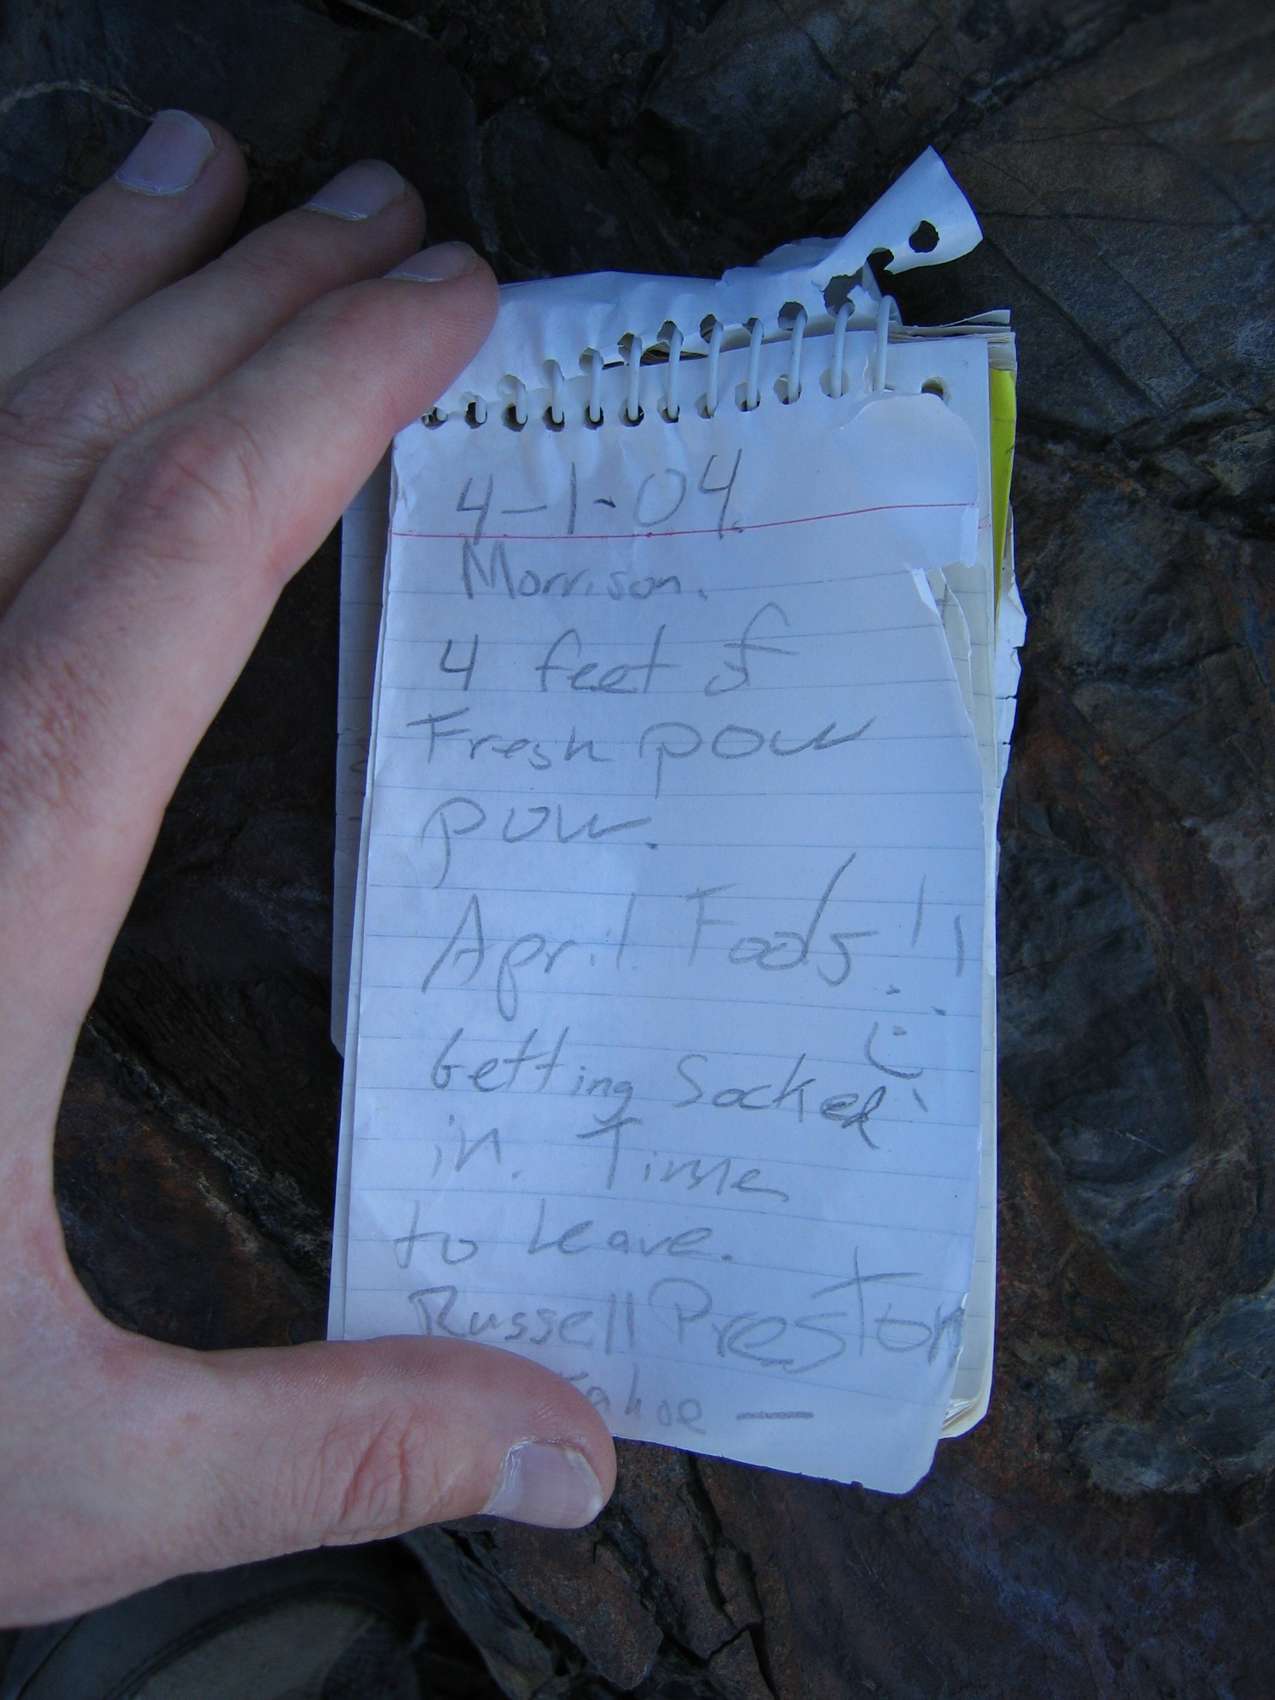 4-1-04
Morrison.
4 feet of
Fresh pow
pow.
April Fools!!
Getting Socked
in. Time
to Leave.
Russell Preston
Tahoe —